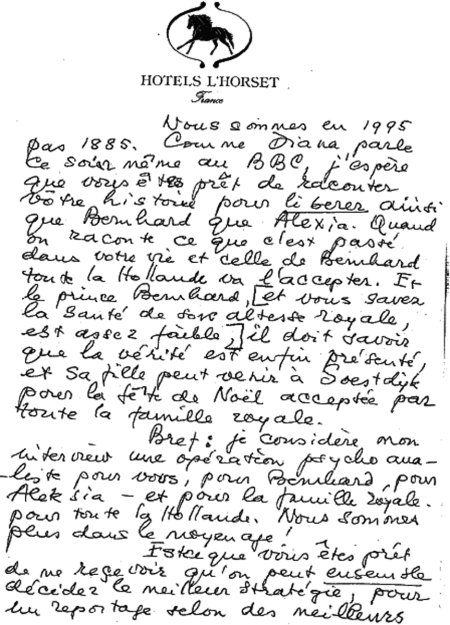 HOTELS L'HORSET
France
Nous sommes en 1995
pas 1885. Comme Diana parle
ce soir même au BBC, j'espère
que vous êtes prêt de raconter
vôtre histoire pour liberer ainsi
que Bernhard que Alexia. Quand
on raconte ce que c'est passé
dans votre vie et celle de Bernhard
toute la Hollande va l'accepter. Et
le prince Bernhard, [et vous savez
la santé de son altesse royale,
est assez faible,] il doit savoir
que la vérité est enfin présenté,
et sa fille peut venir à Soestdijk
pour la fête de Noël acceptée par
toute la famille royale.
Bref: je considère mon
interview une opération psycho ana-
liste pour vous, pour Bernhard, pour
Aleksia – et pour la famille royale.
pour toute la Hollande. Nous sommes
plus dans le moyenage!
Estceque vous êtes prêt
de me reçevoir qu'on peut ensemble
décidez le meilleur stratégie, pour
un reportage selon des meilleurs